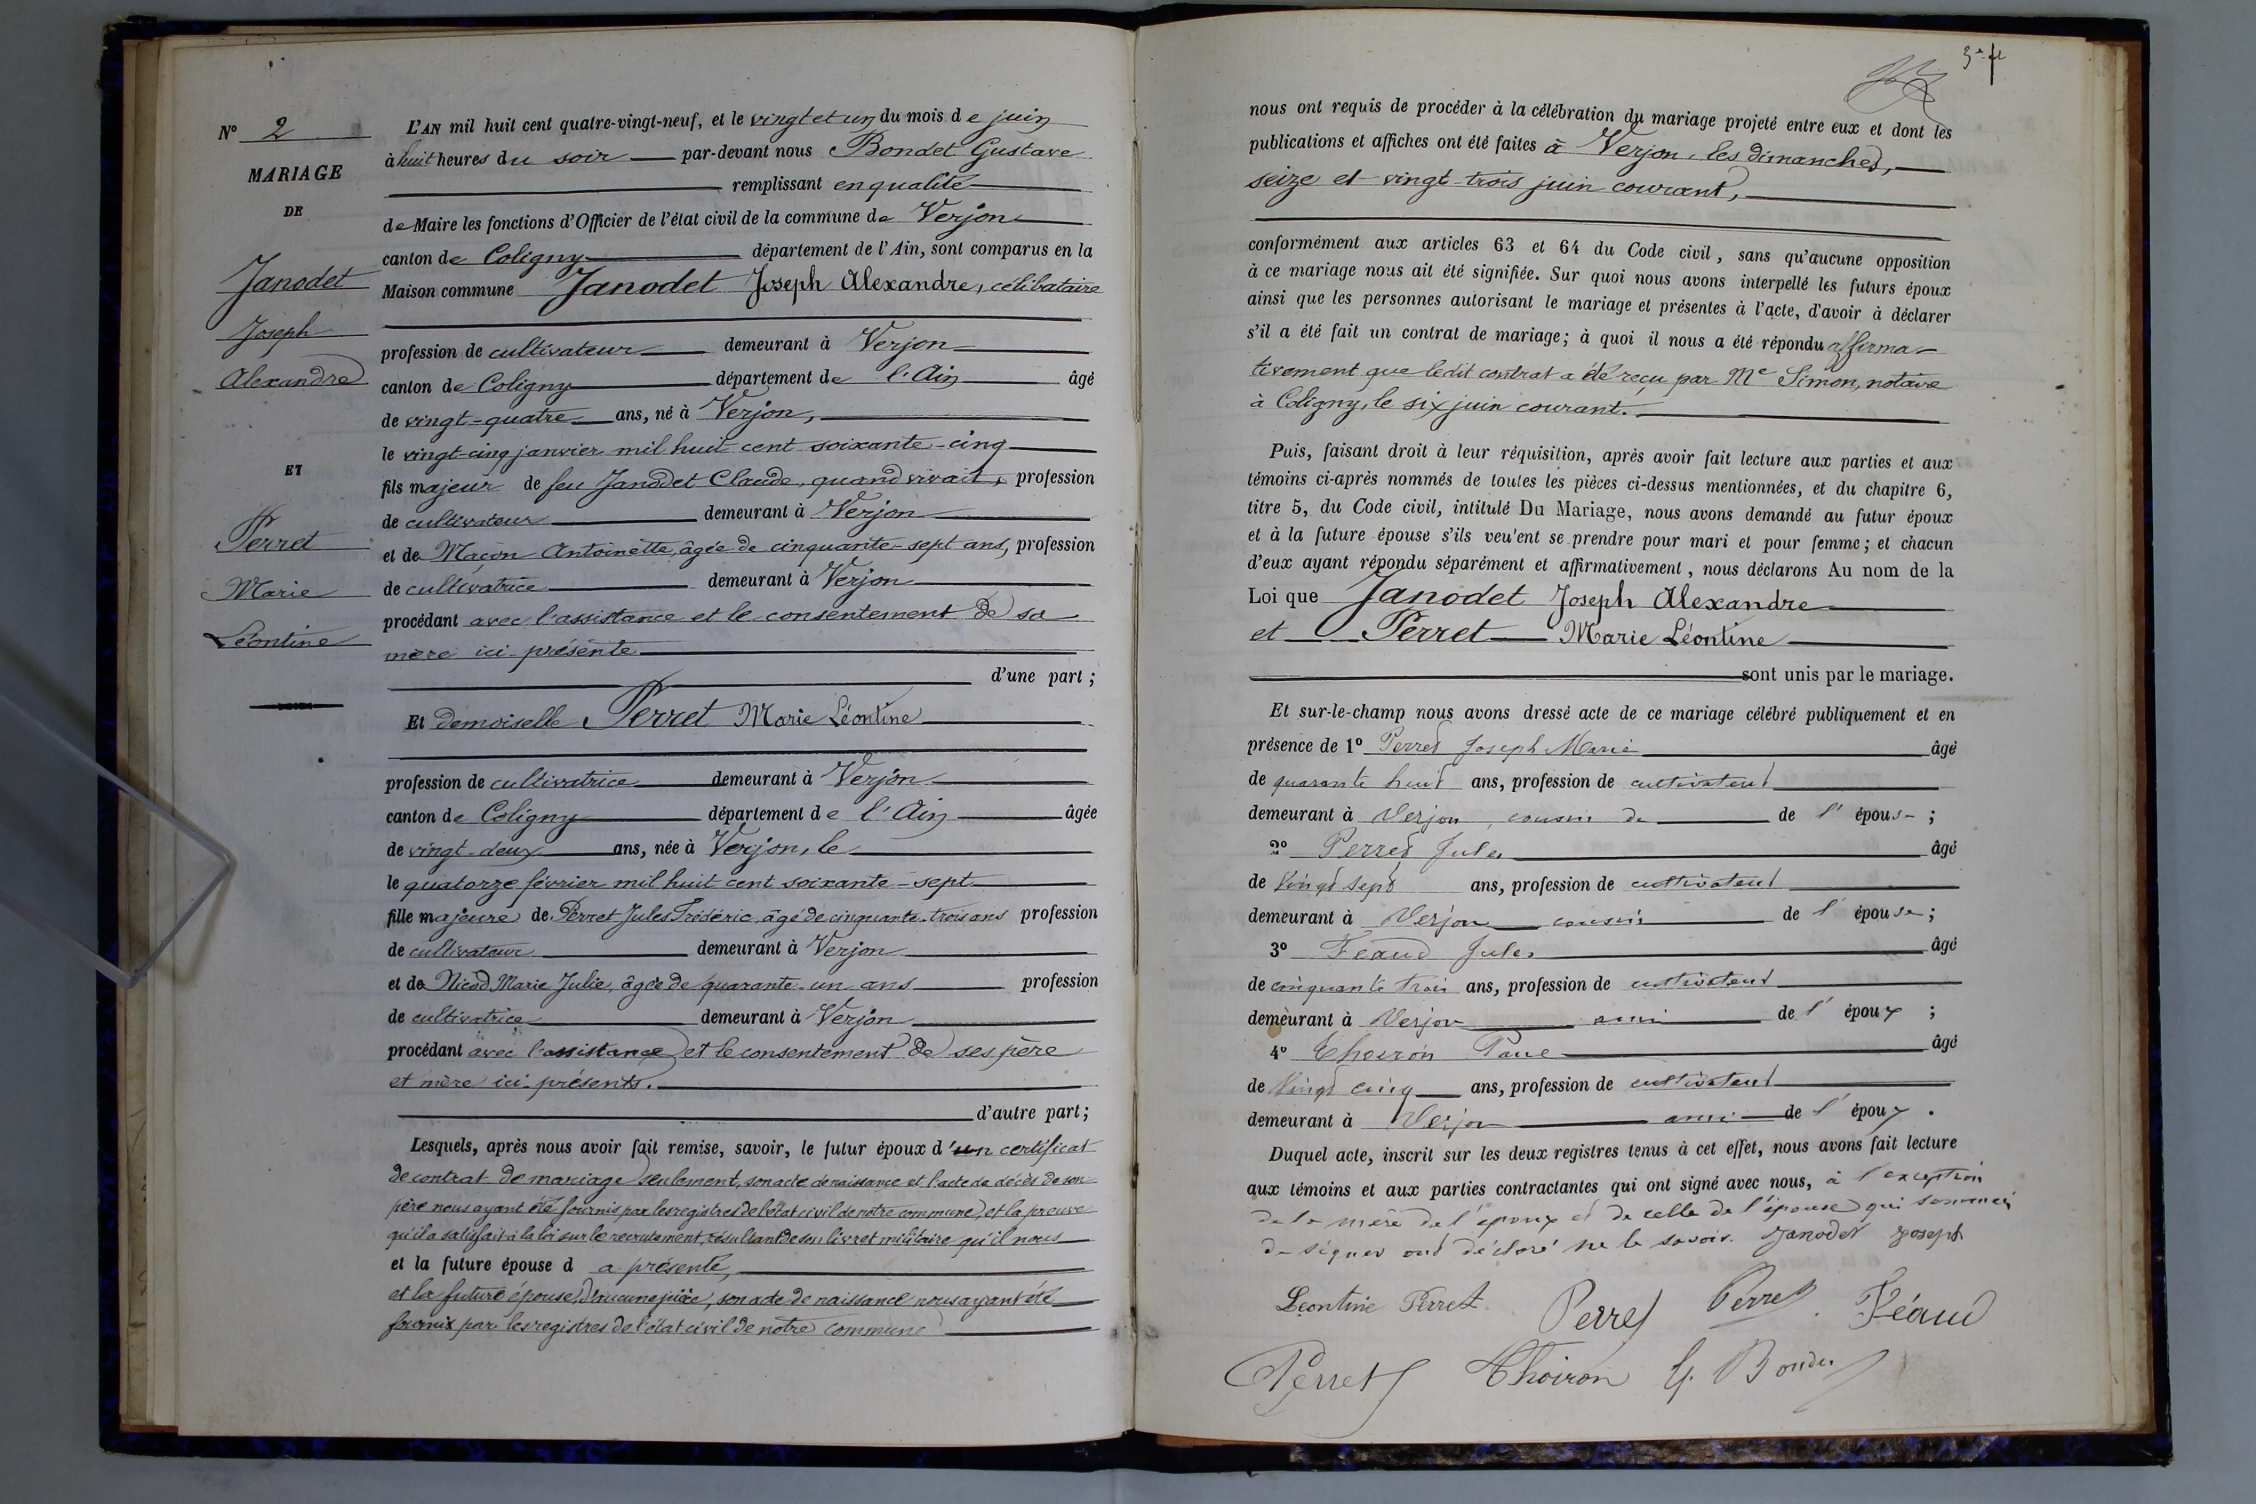 N° 2
MARIAGE
DE
Janodet
Joseph
Alexandre
ET
Perret
Marie
Léontine
L'AN mil huit cent quatre-vingt-neuf, et le vingt et un du mois de juin
à huit heures du soir par-devant nous Bondet Gustave
remplissant en qualité
de Maire les fonctions d'Officier de l'état civil de la commune de Verjon
canton de Coligny département de l'Ain, sont comparus en la
Maison commune Janodet Joseph Alexandre, célibataire
profession de cultivateur demeurant à Verjon
canton de Coligny département de l'Ain âgé
de vingt-quatre ans, né à Verjon,
le vingt-cinq janvier mil huit cent soixante-cinq
fils majeur de feu Janodet Claude, quand vivait, profession
de cultivateur demeurant à Verjon
et de Maçon Antoinette, âgée de cinquante-sept ans, profession
de cultivatrice demeurant à Verjon
procédant avec l'assistance et le consentement de sa
mère ici-présente
d'une part ;
Et demoiselle Perret Marie Léontine
profession de cultivatrice demeurant à Verjon
canton de Coligny département de l'Ain âgée
de vingt-deux ans, née à Verjon, le
le quatorze février mil huit cent soixante-sept
fille majeure de Perret Jules Frédéric, âgé de cinquante-trois ans profession
de cultivateur demeurant à Verjon
et de Nicod Marie Julie, âgée de quarante-un ans profession
de cultivatrice demeurant à Verjon
procédant avec l'assistance et le consentement de ses père
et mère ici-présents.
d'autre part ;
Lesquels, après nous avoir fait remise, savoir, le futur époux d'un certificat
de contrat de mariage seulement, son acte de naissance et l'acte de décès de son
père nous ayant été fournis par les registres de l'état civil de notre commune, et la preuve
qu'il a satisfait à la loi sur le recrutement, résultant de son livret militaire qu'il nous
et la future épouse d a présenté,
et la future épouse, d'aucune pièce, son acte de naissance nous ayant été
fournis par les registres de l'état civil de notre commune
nous ont requis de procéder à la célébration du mariage projeté entre eux et dont les
publications et affiches ont été faites à Verjon, les dimanches,
seize et vingt-trois juin courant,
conformément aux articles 63 et 64 du Code civil, sans qu'aucune opposition
à ce mariage nous ait été signifiée. Sur quoi nous avons interpellé les futurs époux
ainsi que les personnes autorisant le mariage et présentes à l'acte, d'avoir à déclarer
s'il a été fait un contrat de mariage ; à quoi il nous a été répondu affirma-
tivement que le dit contrat a été reçu par Me Simon, notaire
à Coligny, le six juin courant.
Puis, faisant droit à leur réquisition, après avoir fait lecture aux parties et aux
témoins ci-après nommés de toutes les pièces ci-dessus mentionnées, et du chapitre 6,
titre 5, du Code civil, intitulé Du Mariage, nous avons demandé au futur époux
et à la future épouse s'ils veu'ent se prendre pour mari et pour femme ; et chacun
d'eux ayant répondu séparément et affirmativement, nous déclarons Au nom de la
Loi que Janodet Joseph Alexandre
et Perret Marie Léontine
sont unis par le mariage.
Et sur-le-champ nous avons dressé acte de ce mariage célébré publiquement et en
présence de 1° Perret Joseph Marie âgé
de quarante huit ans, profession de cultivateur
demeurant à Verjon, cousin de de l'épouse ;
2° Perret Jules âgé
de vingt sept ans, profession de cultivateur
demeurant à Verjon cousin de l'épouse ;
3° Féaud Jules âgé
de cinquante trois ans, profession de cultivateur
demeurant à Verjon ami de l'époux ;
4° Thoiron Paul âgé
de vingt cinq ans, profession de cultivateur
demeurant à Verjon ami de l'époux .
Duquel acte, inscrit sur les deux registres tenus à cet effet, nous avons fait lecture
aux témoins et aux parties contractantes qui ont signé avec nous, à l'exception
de la mère de l'époux et de celle de l'épouse qui
de signer ont déclaré ne le savoir. Janodet Joseph
Leontine Perret Perret Perret Féaud
Perret Thoiron G. Bondet